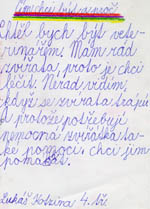 Čím chci být a proč
Chtěl bych být vete-
rinářem. Mám rád
zvířata, proto je chci
léčit. Nerad vidím,
když se zvířata trápí
a protože potřebují
nemocná zvířátka ta-
ké pomoci chci jim
pomáhat.
Lukáš Kotzina 4. tř.